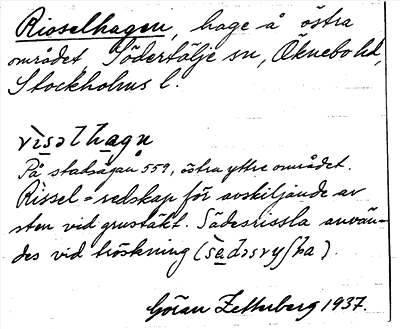 Risselhagen, hage å östra
området, Södertälje sn, Öknebo hd,
Stockholms l.
rìsəlhagn
På stadsägan 559, östra yttre området.
Rissel = redskap för avskiljande av
sten vid grustäkt. Sädesrissla använ-
des vid tröskning (sàdəsryʃha).
Göran Zetterberg 1937.